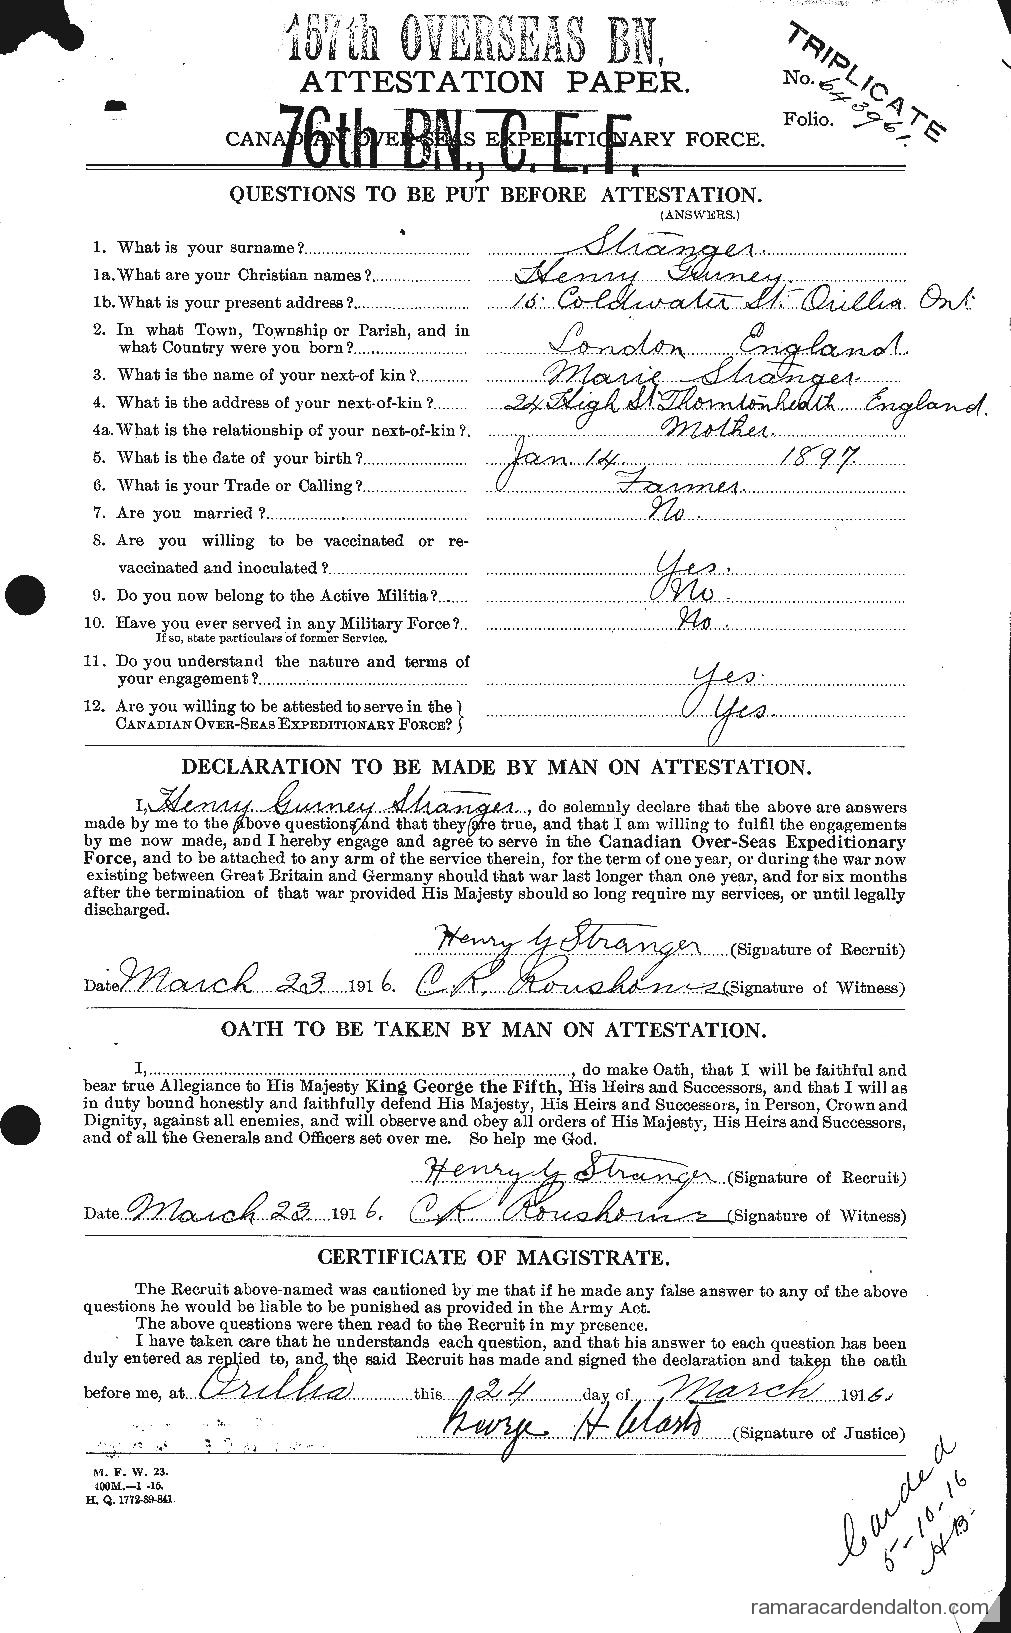 167th OVERSEAS BN,
ATTESTATION PAPER.
TRIPLICATE
No. 643961.
Folio.
76th BN., C. E. F.
CANADIAN OVER-SEAS EXPEDITIONARY FORCE.
QUESTIONS TO BE PUT BEFORE ATTESTATION.
(ANSWERS.)
1. What is your surname? Stranger.
1a. What are your Christian names? Henry Gurney.
1b. What is your present address? 15 Coldwater St. Orillia Ont
2. In what Town, Township or Parish, and in
what Country were you born? London England.
3. What is the name of your next-of kin? Marie Stranger.
4. What is the address of your next-of-kin? 24 High St Thorntonheath England.
4a. What is the relationship of your next-of-kin? Mother.
5. What is the date of your birth? Jan. 14 1897.
6. What is your Trade or Calling? Farmer.
7. Are you married? No.
8. Are you willing to be vaccinated or re-
vaccinated and inoculated? Yes.
9. Do you now belong to the Active Militia? No.
10. Have you ever served in any Military Force? No.
If so, state particulars of former Service.
11. Do you understand the nature and terms of
your engagement? Yes.
12. Are you willing to be attested to serve in the }
CANADIAN OVER-SEAS EXPEDITIONARY FORCE? } Yes.
DECLARATION TO BE MADE BY MAN ON ATTESTATION.
I, Henry Gurney Stranger, do solemnly declare that the above are answers
made by me to the above questions and that they are true, and that I am willing to fulfil the engagements
by me now made, and I hereby engage and agree to serve in the Canadian Over-Seas Expeditionary
Force, and to be attached to any arm of the service therein, for the term of one year, or during the war now
existing between Great Britain and Germany should that war last longer than one year, and for six months
after the termination of that war provided His Majesty should so long require my services, or until legally
discharged.
Henry G Stranger (Signature of Recruit)
Date March 23 1916. C. R. (Signature of Witness)
OATH TO BE TAKEN BY MAN ON ATTESTATION.
I, , do make Oath, that I will be faithful and
bear true Allegiance to His Majesty King George the Fifth, His Heirs and Successors, and that I will as
in duty bound honestly and faithfully defend His Majesty, His Heirs and Successors, in Person, Crown and
Dignity, against all enemies, and will observe and obey all orders of His Majesty, His Heirs and Successors,
and of all the Generals and Officers set over me. So help me God.
Henry G Stranger (Signature of Recruit)
Date March 23 1916. C R (Signature of Witness)
CERTIFICATE OF MAGISTRATE.
The Recruit above-named was cautioned by me that if he made any false answer to any of the above
questions he would be liable to be punished as provided in the Army Act.
The above questions were then read to the Recruit in my presence.
I have taken care that he understands each question, and that his answer to each question has been
duly entered as replied to, and the said Recruit has made and signed the declaration and taken the oath
before me, at Orillia this 24 day of March 1916.
George H Clark (Signature of Justice)
M. F. W. 23.
400M.—1-15.
H. Q. 1772-39-841.
Carded
5-10-16
HB.
ramaracardendalton.com